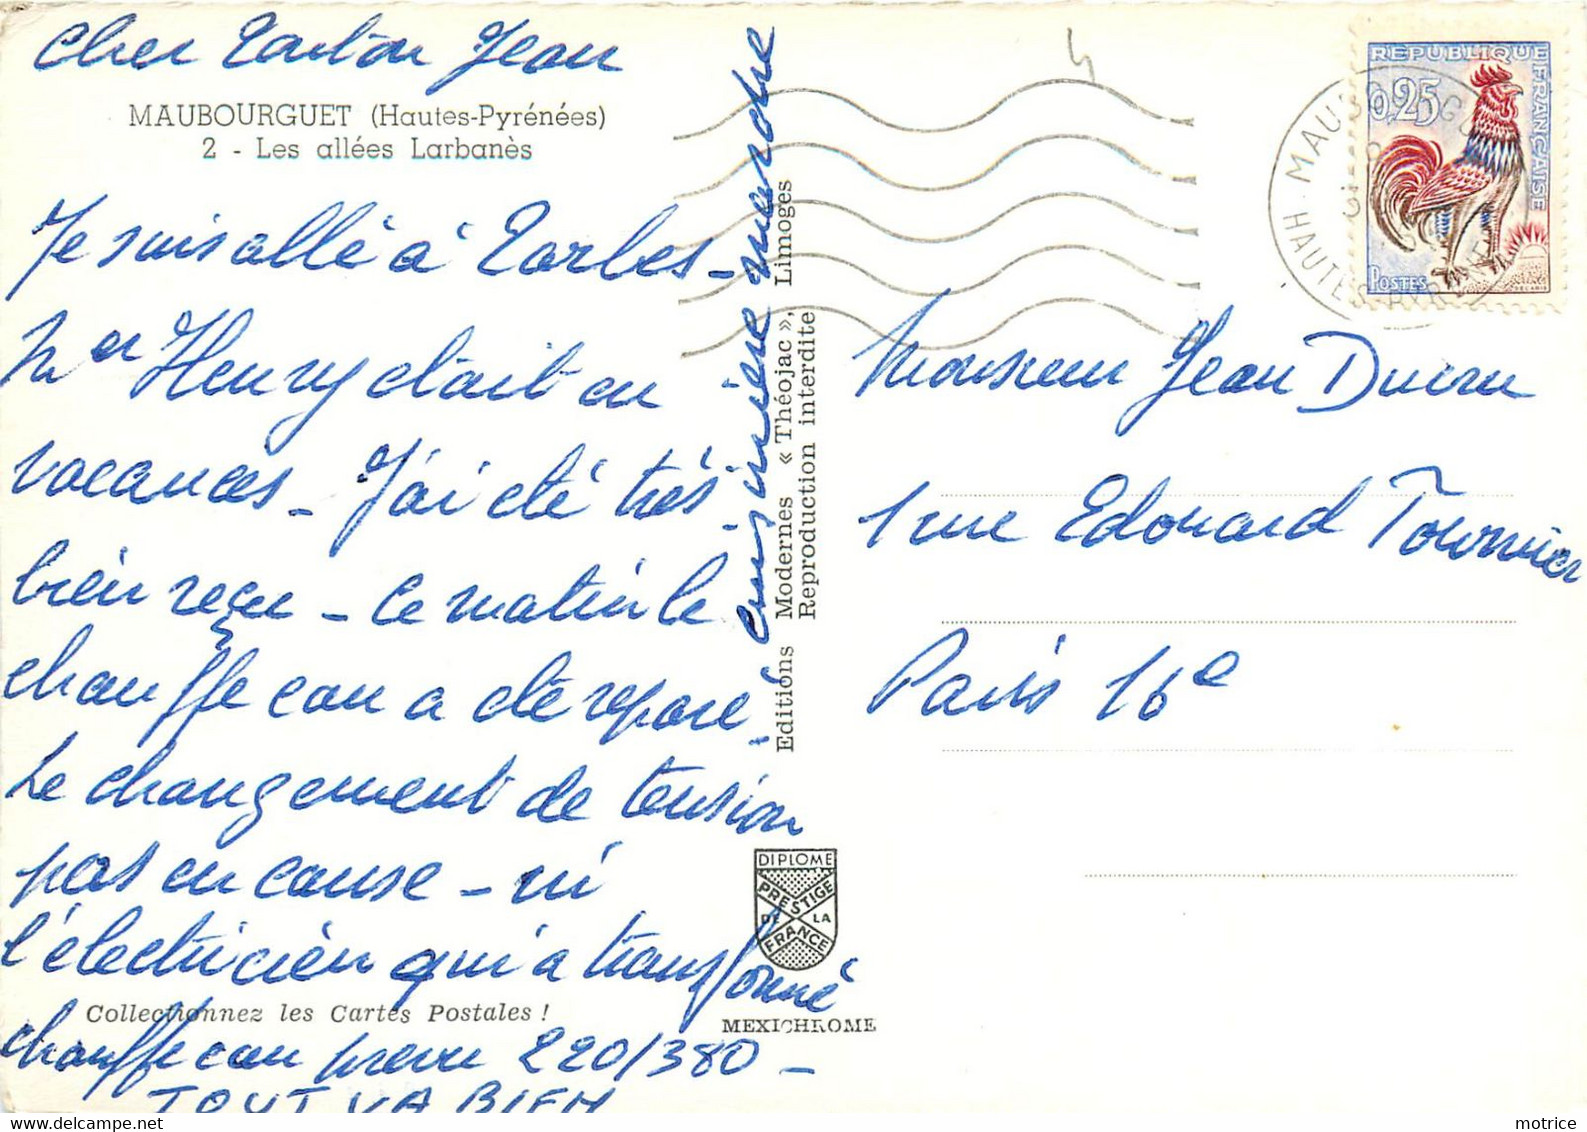 Cher Tonton Jean
MAUBOURGUET (Hautes-Pyrénées)
2 - Les allées Larbanès
Je suis allé à Tarbes -
Mer Henry était en
vacances - J'ai été très
bien reçu - Ce matin le
chauffe eau a été reparé.
Le changement de tension
pas en cause - ni
l'électricien qui a transformé
chauffe eau prevu 220/380 -
TOUT VA BIEN
Collectionnez les Cartes Postales !
cuisinière marche
Editions Modernes « Théojac », Limoges
Reproduction interdite
DIPLOME
PRESTIGE
DE LA
FRANCE
MEXICHROME
REPUBLIQUE FRANÇAISE
0,25
POSTES
HAUTES-PYRENEES
Monsieur Jean
1 rue Edouard Fournier
Paris 16e
motrice